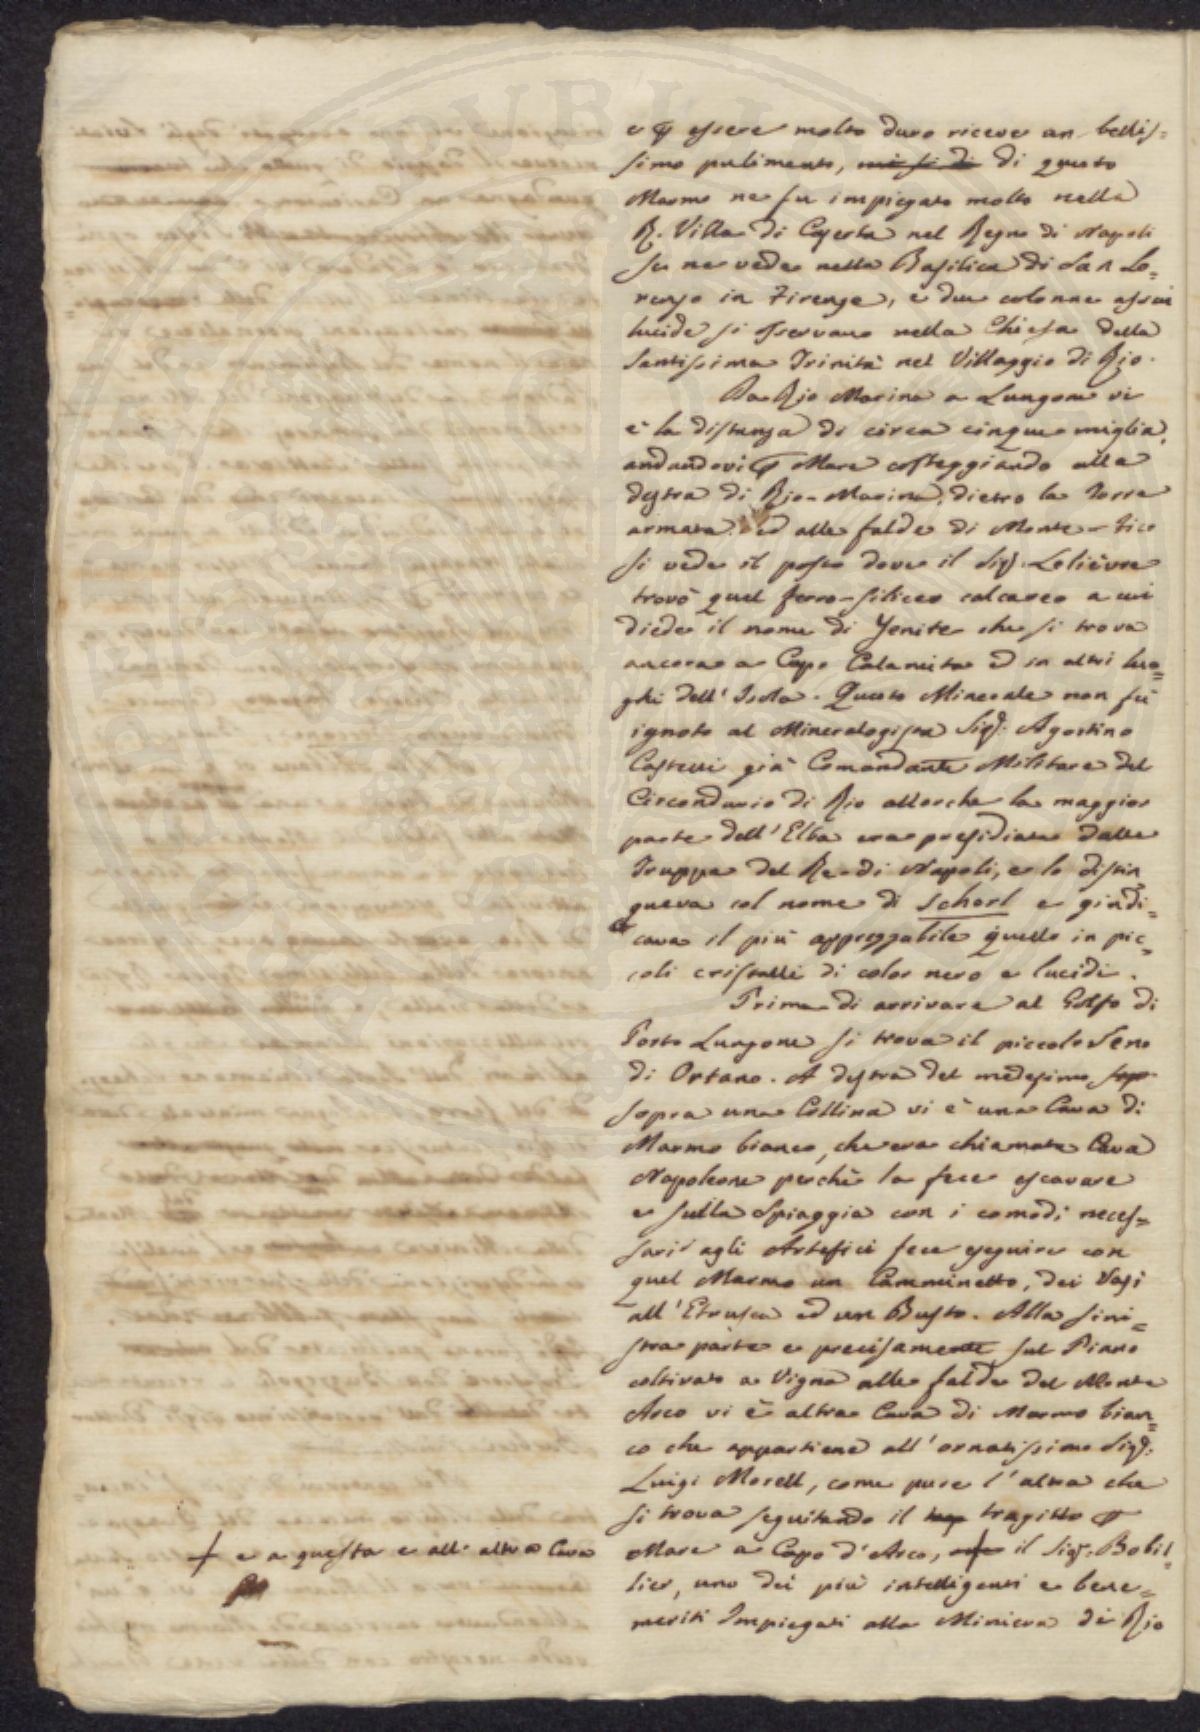 e ꝑ essere molto duro riceve un bellis=
simo pulimento, di questo
Marmo ne fu impiegato molto nella
R. Villa di Caserta nel Regno di Napoli
se ne vede nella Basilica di San Lo=
renzo in Firenze, e due colonne assai
lucide si osservano nella Chiesa della
Santissima Trinità nel Villaggio di Rio.
Da Rio Marina a Lungone vi
è la distanza di circa cinque miglia,
andandovi ꝑ Mare costeggiando alla
destra di Rio-Marina, dietro la Torre
armata ed alle falde di Monte-Fico
si vede il posto dove il Sigr. Lelièvre
trovò quel ferro-siliceo calcareo a cui
diede il nome di Yenite che si trova
ancora a Capo Calamita ed in altri luo=
ghi dell' Isola. Questo Minerale non fù
ignoto al Mineralogista Sigr. Agostino
Castelli già Comandante Militare del
Circondario di Rio allorche la maggior
parte dell' Elba era presidiata dalle
Truppe del Re di Napoli, e lo distin
gueva col nome di Schorl e giudi=
cava il più apprezzabile quello in pic=
coli cristalli di color nero e lucidi.
Prima di arrivare al Golfo di
Porto Lungone si trova il piccolo Seno
di Ortano. A destra del medesimo sop
sopra una Collina vi è una Cava di
Marmo bianco, che era chiamata Cava
Napoleone perchè la fece escavare
e sulla Spiaggia con i comodi neces=
sari agli Artefici fece eseguire con
quel Marmo un Camminetto, dei Vasi
all' Etrusca ed un Busto. Alla sini=
stra parte e precisamente sul Piano
coltivato a Vigna alle falde del Monte
Arco vi è altra Cava di Marmo bian=
co che appartiene all' ornatissimo Sigr.
Luigi Morell, come pure l' altra che
si trova seguitando il trap tragitto ꝑ
Mare a Capo d' Arco, + il Sigr. Bobil=
lier, uno dei più intelligenti e bene=
meriti Impiegati alla Miniera di Rio
+ e a questa e all' altra Cava